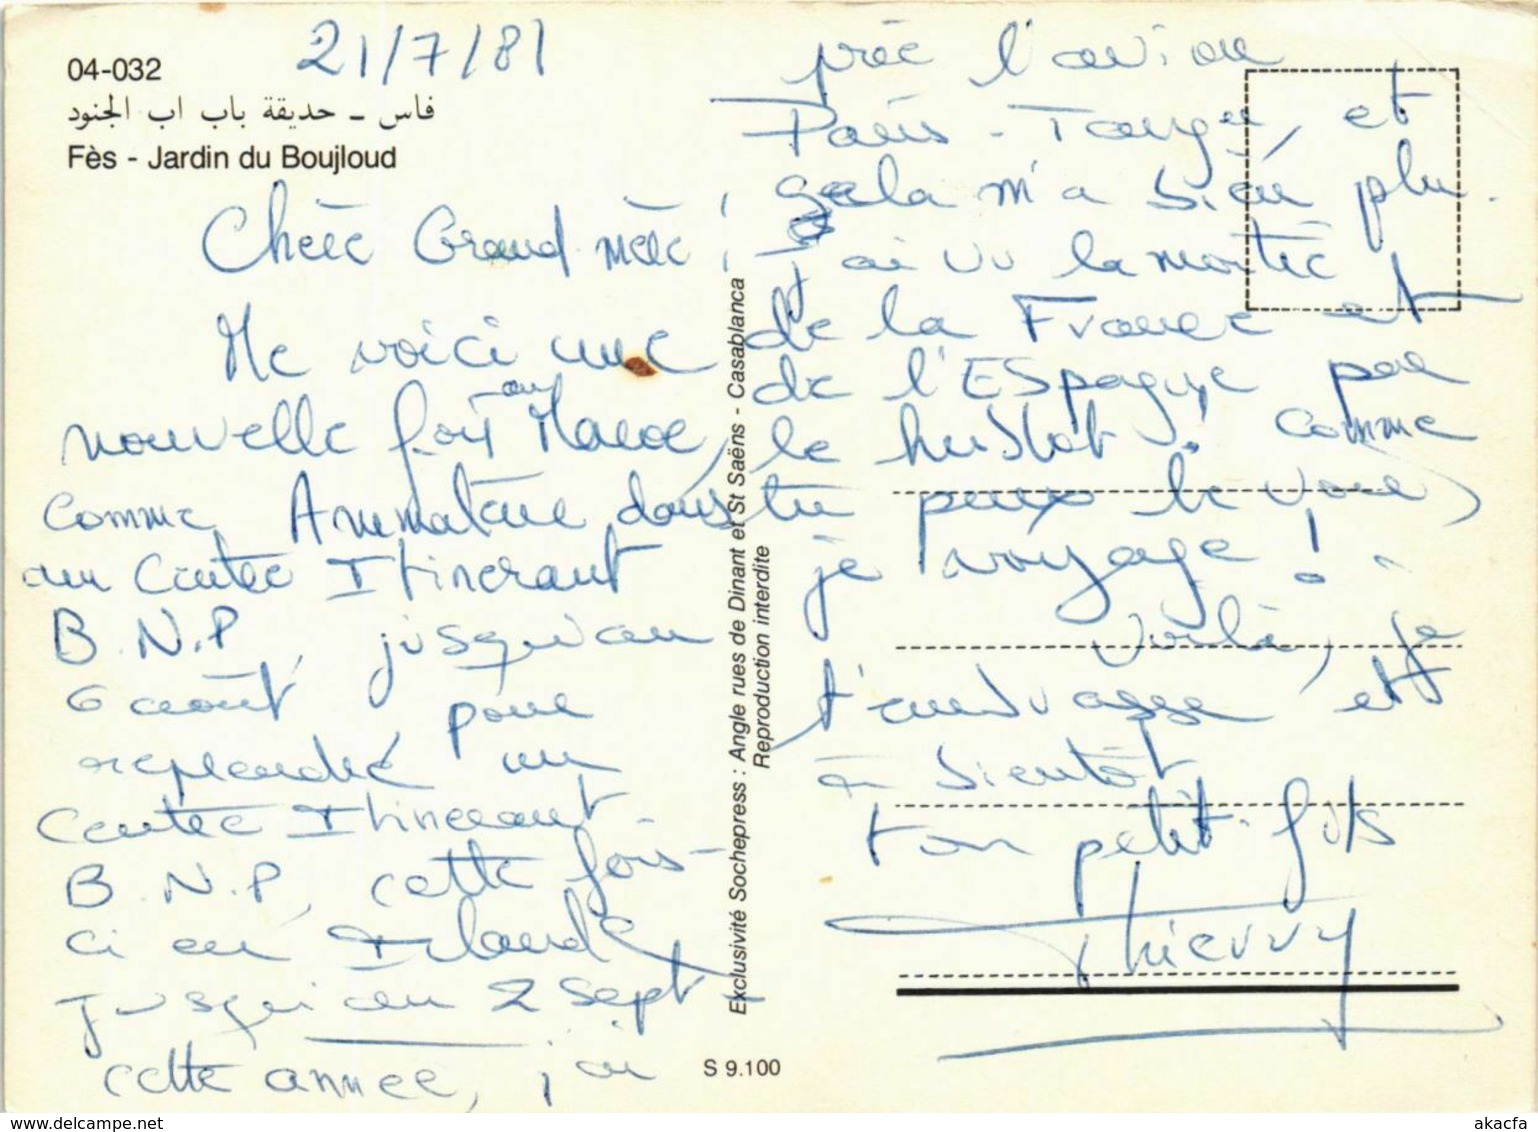 21/7/81
04-032
فاس - حديقة باب اب الجنود
Fès - Jardin du Boujloud
Chère Grand-mère,
Me voici une
nouvelle fois au Maroc,
comme Animateur dans
un Centre Itinérant
B.N.P, jusqu'au
6 août, pour
reprendre un
Centre Itinérant
B.N.P, cette fois-
ci en Irlande,
jusqu'au 2 sept -
cette année, j'ai
pris l'avion
Paris - Tanger, et
cela m'a bien plu.
J'ai vu la moitié
de la France et
de l'Espagne par
le hublot. Comme
tu peux le voir,
je voyage !
Voilà, je
t'embrasse, et
à bientôt
ton petit-fils
Thierry
Exclusivité Sochepress : Angle rues de Dinant et St Saëns - Casablanca
Reproduction interdite
S 9.100
www.delcampe.net
akacfa